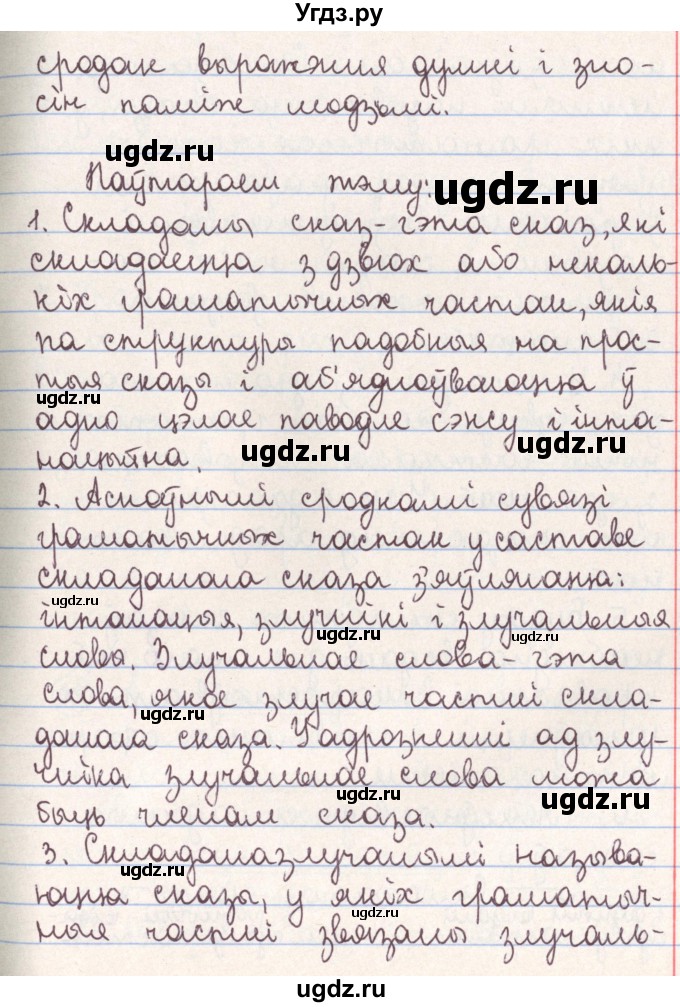 Угдз.ру
сродак выражэння думкі і зно-
сін паміж людзьмі.
ugdz.ru
Паўтараем тэму:
ugdz.ru
1. Складаны сказ - гэта сказ, які
складаецца з дзвюх або некаль-
кіх граматычных частак, якія
па структуры падобныя на прос-
тыя сказы і аб'ядноўваюцца ў
ugdz.ru
адно цэлае паводле сэнсу і інта-
нацыйна.
ugdz.ru
ugdz.ru
2. Асноўнымі сродкамі сувязі
граматычных частак у саставе
складанага сказа з'яўляюцца:
ugdz.ru
інтанацыя, злучнікі і злучальныя
ugdz.ru
ugdz.ru
словы. Злучальнае слова - гэта
слова, якое злучае часткі скла-
ugdz.ru
данага сказа. У адрозненні ад злу-
чніка злучальнае слова можа
ugdz.ru
ugdz.ru
быць членам сказа.
3. Складаназлучанымі называ-
ugdz.ru
юцца сказы, у якіх граматыч-
ныя часткі звязаны злучаль-
ugdz.ru